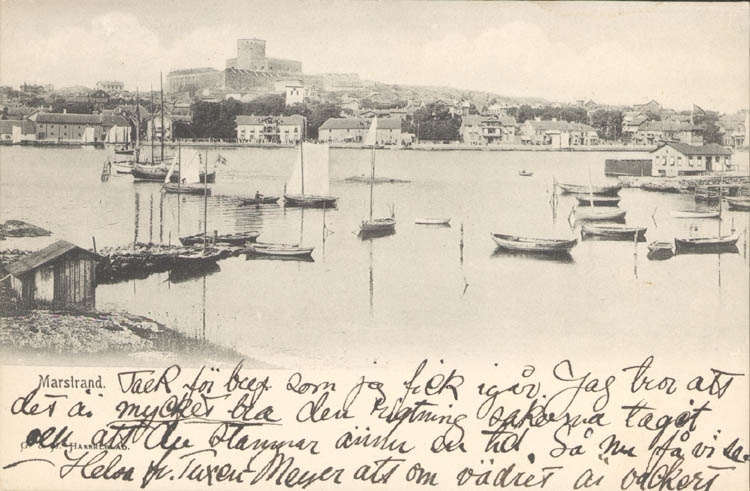 Marstrand. Tack för bref som jag fick igår, Jag tror att
det är mycket bra den rigtning sakerna taget
och att Du stannar ännu en tid. Så nu få vi se
G. & Co
Helsa fr. Tuxen Meyer att om vädret är vackert